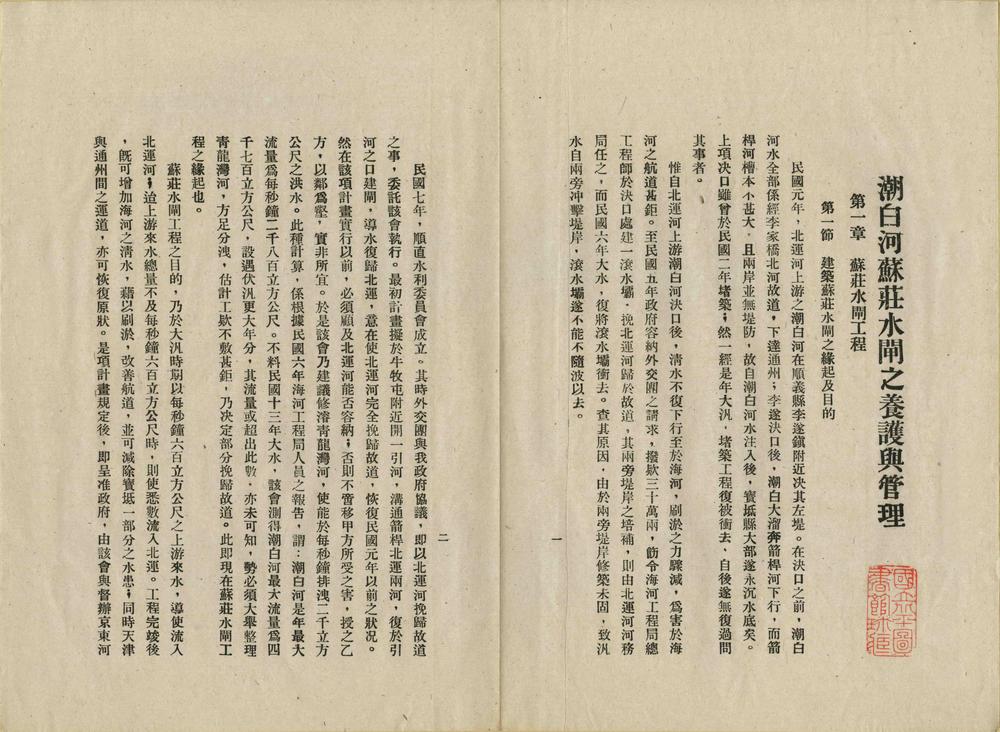 潮白河蘇莊水閘之養護與管理
第一章　蘇莊水閘工程
第一節　建築蘇莊水閘之緣起及目的
民國元年，北運河上游之潮白河在順義縣李遂鎮附近决其左堤。在決口之前，潮白
河水全部係經李家橋北河故道，下達通州；李遂決口後，潮白大溜奔箭桿河下行，而箭
桿河槽本不甚大，且兩岸並無堤防，故自潮白河水注入後，寶坻縣大部遂永沉水底矣。
上項決口雖曾於民國二年堵築；然一經是年大汛，堵築工程復被衝去，自後遂無復過問
其事者。
惟自北運河上游潮白河決口後，清水不復下行至於海河，刷淤之力驟減，爲害於海
河之航道甚鉅。至民國五年政府容納外交團之請求，撥欵三十萬兩，飭令海河工程局總
工程師於決口處建一滾水壩，挽北運河歸於故道，其兩旁堤岸之培補，則由北運河河務
局任之，而民國六年大水，復將滾水壩衝去。查其原因，由於兩旁堤岸修築未固，致汎
水自兩旁冲擊堤岸，滾水壩遂不能不隨波以去。
一
民國七年，順直水利委員會成立。其時外交團與我政府協議，即以北運河挽歸故道
之事，委託該會執行。最初計畫擬於牛牧屯附近開一引河，溝通箭桿北運兩河，復於引
河之口建閘，導水復歸北運，意在使北運河完全挽歸故道，恢復民國元年以前之狀况。
然在該項計畫實行以前，必須顧及北運河能否容納；否則不啻移甲方所受之害，授之乙
方，以鄰爲壑，實非所宜。於是該會乃建議修濬青龍灣河，使能於每秒鐘排洩二千立方
公尺之洪水。此種計算，係根據民國六年海河工程局人員之報告，謂：潮白河是年最大
流量爲每秒鐘二千八百立方公尺。不料民國十三年大水，該會測得潮白河最大流量爲四
千七百立方公尺，設遇伏汛更大年分，其流量或超出此數，亦未可知，勢必須大舉整理
青龍灣河，方足分洩，估計工欵不敷甚鉅，乃決定部分挽歸故道。此即現在蘇莊水閘工
程之緣起也。
蘇莊水閘工程之目的，乃於大汛時期以每秒鐘六百立方公尺之上游來水，導使流入
北運河；迨上游來水總量不及每秒鐘六百立方公尺時，則使悉數流入北運。工程完竣後
，旣可增加海河之清水，藉以刷淤，改善航道，並可減除寶坻一部分之水患；同時天津
與通州間之運道，亦可恢復原狀。是項計畫規定後，即呈准政府，由該會與督辦京東河
二
國立北平圖
書館珍藏